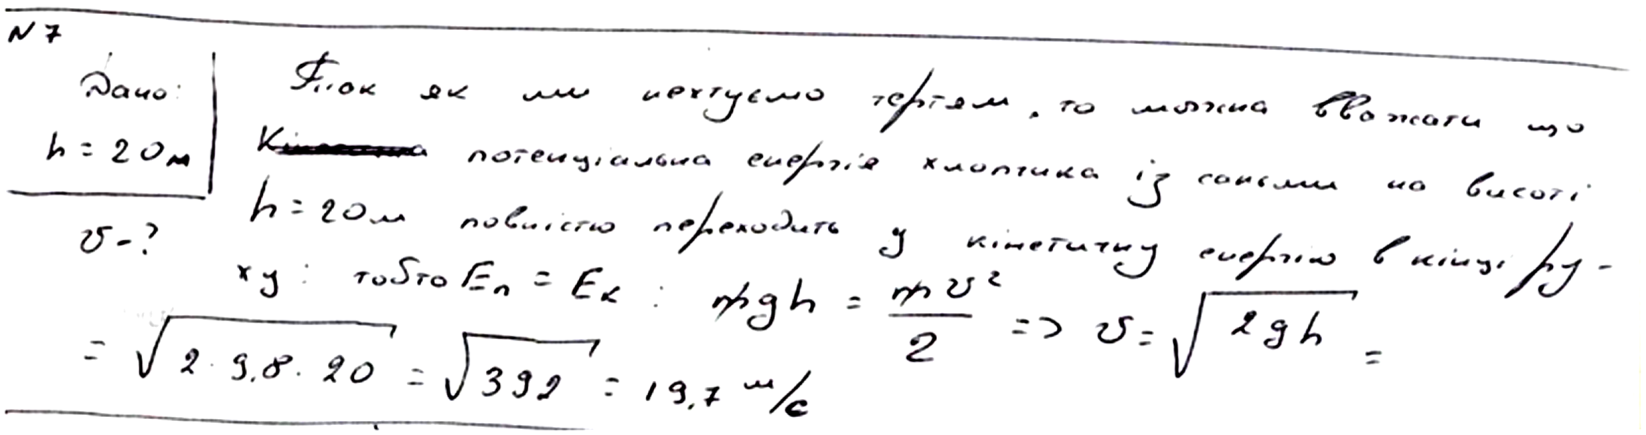 N 7
Дано:
h = 20 м
υ - ?
Так як ми нехтуємо тертям, то можна вважати що
потенціальна енергія хлопчика із саньми на висоті
h = 20 м повністю переходить у кінетичну енергію в кінці ру-
ху : тобто Eп = Eк : mgh = mυ²/2 => υ = √2gh =
= √2·9,8·20 = √392 = 19,7 м/с